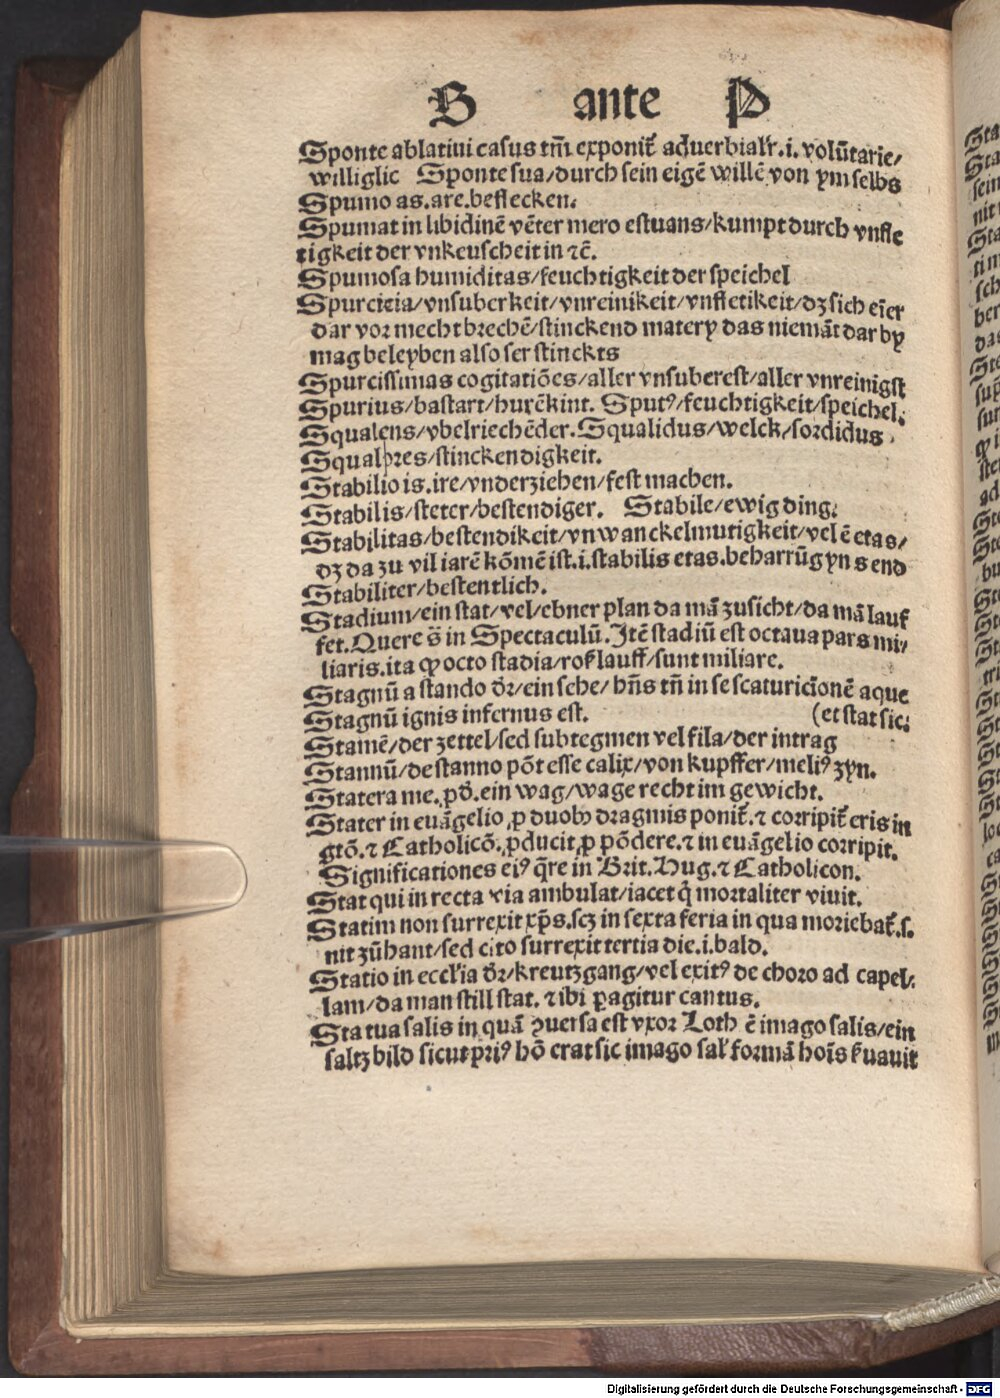 S ante P
Sponte ablatiui casus tm̄ exponit᷑ aduerbialr̄.i. volūtarie/
williglic Sponte sua/durch sein eigē willē von ym selbs
Spumo as.are.beflecken.
Spumat in libidinē vēter mero estuans/kumpt durch vnfle
tigkeit der vnkeuscheit in ⁊c̄.
Spumosa humiditas/feuchtigkeit der speichel
Spurcicia/vnsuberkeit/vnreinikeit/vnfletikeit/dz sich eīer
dar vor mecht brechē/stinckend matery das niemāt dar by
mag beleyben also ser stinckts
Spurcissimas cogitatiōes/aller vnsuberest/aller vnreinigst
Spurius/bastart/hurēkint. Sputꝰ/feuchtigkeit/speichel.
Squalens/vbelriechēder. Squalidus/welck/sordidus
Squalores/stinckendigkeit.
Stabilio is.ire/vnderziehen/fest machen.
Stabilis/steter/bestendiger. Stabile/ewig ding.
Stabilitas/bestendikeit/vnwanckelmutigkeit/vel ē etas/
dz da zu vil iarē kōmē ist.i.stabilis etas.beharrūg yns end
Stabiliter/bestentlich.
Stadium/ein stat/vel/ebner plan da mā zusicht/da mā lauf
fet. Quere s̄ in Spectaculū. Itē stadiū est octaua pars mi/
liaris.ita ꝙ octo stadia/roſzlauff/sunt miliare.
Stagnū a stando dr̄/ein sehe/hn̄s tn̄ in se scaturicionē aque
Stagnū ignis infernus est. (et stat sic.
Stamē/der zettel/sed subtegmen vel fila/der intrag
Stannū/de stanno pōt esse calix/von kupffer/meliꝰ zyn.
Statera me.ꝓd̄.ein wag/wage recht im gewicht.
Stater in euāgelio ꝓ duobꝰ dragmis ponit᷑.⁊ corripit᷑ eris in
gtō.⁊ Catholicō.ꝓducit ꝓ pōdere.⁊ in euāgelio corripit.
Significationes eiꝰ q̄re in Brit.Hug.⁊ Catholicon.
Stat qui in recta via ambulat/iacet q̇ mortaliter viuit.
Statim non surrexit xp̄s.scz in sexta feria in qua moriebat᷑.s.
nit zūhant/sed cito surrexit tertia die.i.bald.
Statio in eccl̄ia dr̄/kreutzgang/vel exitꝰ de choro ad capel/
lam/da man still stat.⁊ ibi ꝑagitur cantus.
Statua salis in quā ꝯuersa est vxor Loth ē imago salis/ein
saltz bild sicut priꝰ hō erat sic imago sal̄ formā hoīs ẜuauit
Digitalisierung gefördert durch die Deutsche Forschungsgemeinschaft - DFG